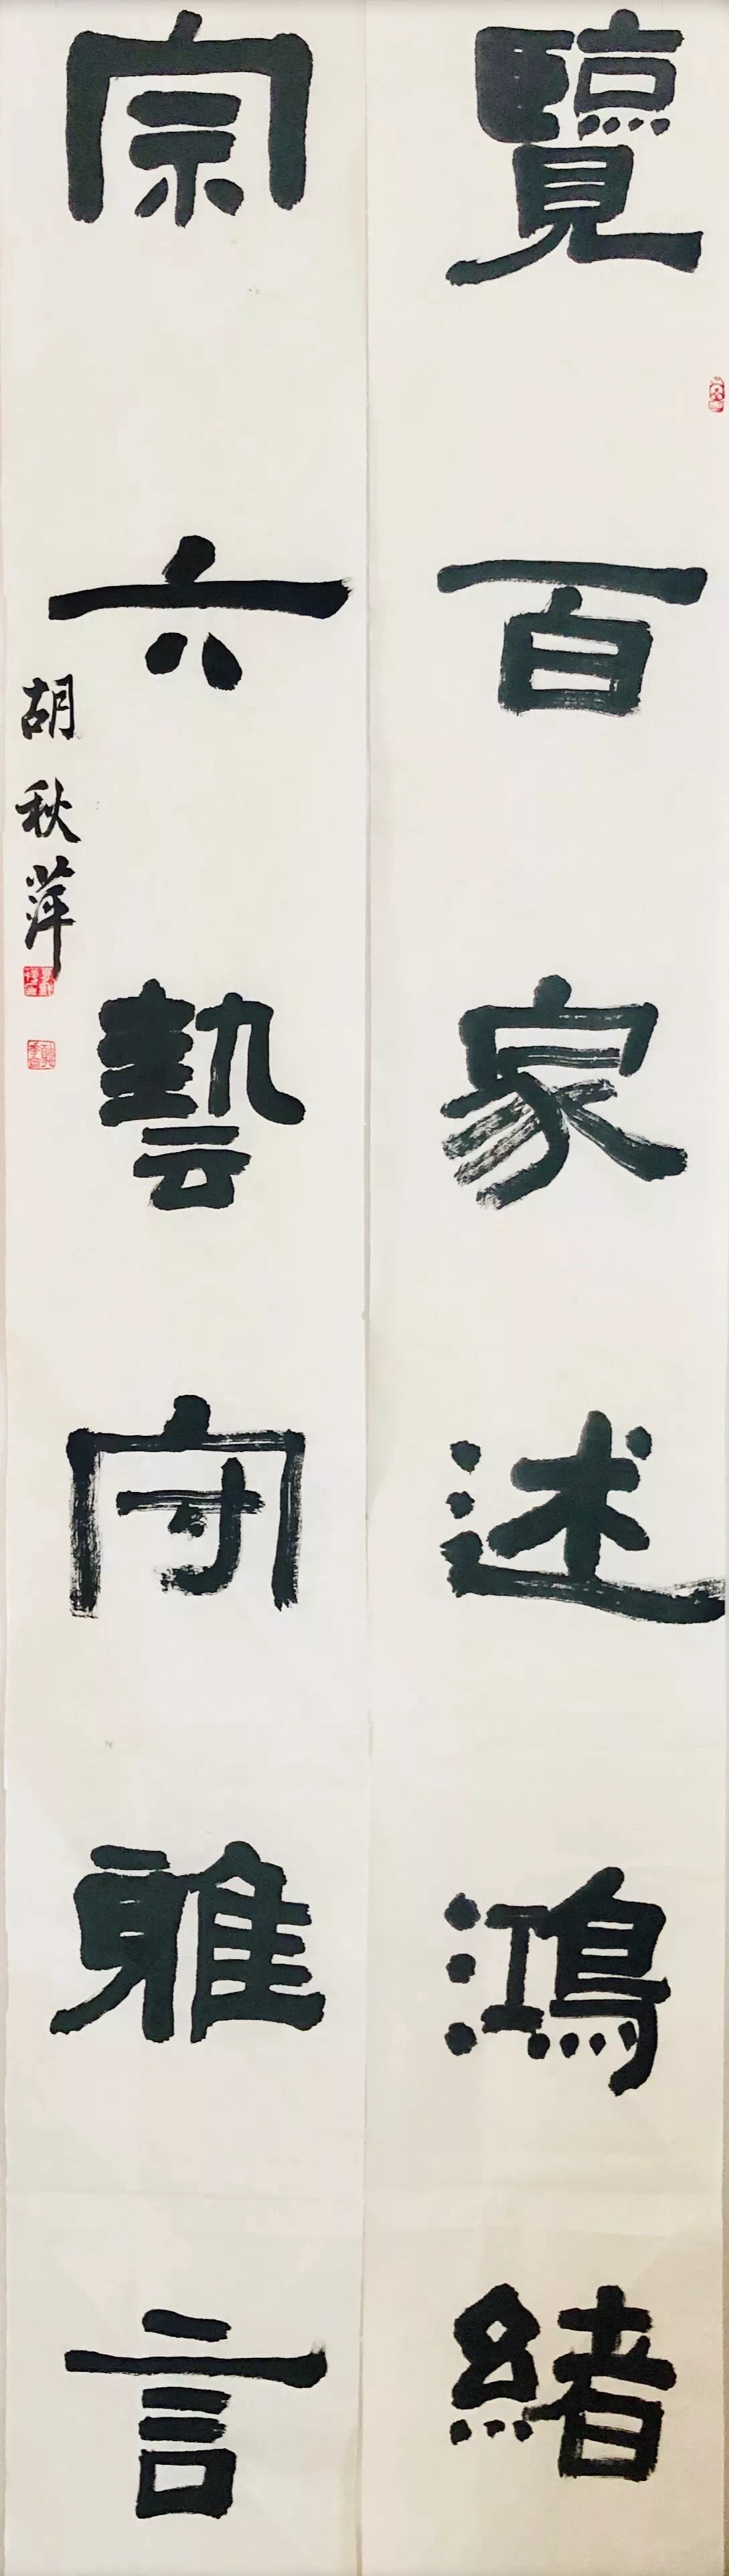 覽百家述鴻緒
宗六藝守雅言
胡秋萍